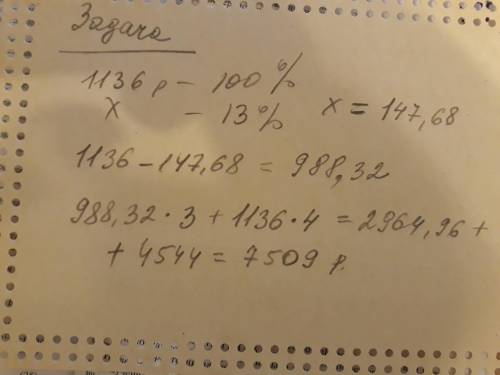 Задача
1136 р – 100 %
х – 13 % х = 147,68
1136 – 147,68 = 988,32
988,32 · 3 + 1136 · 4 = 2964,96 +
+ 4544 = 7509 р.